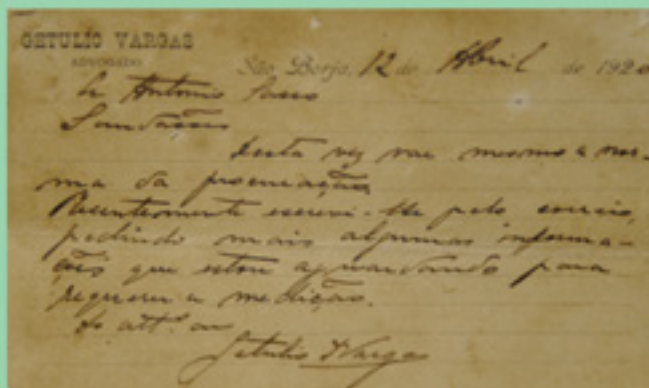 GETULIO VARGAS
ADVOGADO
São Borja, 12 de Abril de 192
Sr Antonio
Saudações
Desta vez vae mesmo a nor-
ma da procuração.
Recentemente escrevi-lhe pelo correio,
pedindo mais algumas informa-
ções que estou aguardando para
requerer a medição.
Do attº am
Getulio Vargas